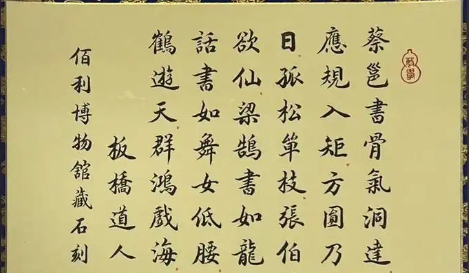 蔡邕書骨氣洞達
應規入矩方圓乃
日孤松單枝張伯
欲仙梁鵠書如龍
話書如舞女低腰
鶴遊天群鴻戲海
板橋道人
佰利博物館藏石刻